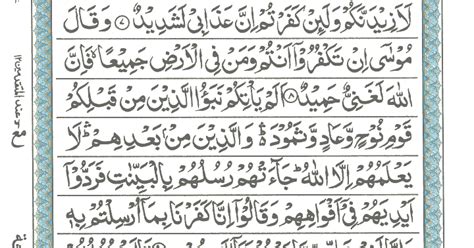 لَاَزِيْدَنَّكُمْ وَلَئِنْ كَفَرْتُمْ اِنَّ عَذَابِيْ لَشَدِيْدٌ ۷ وَقَالَ
مُوْسٰٓى اِنْ تَكْفُرُوْٓا اَنْتُمْ وَمَنْ فِي الْاَرْضِ جَمِيْعًا ۙ فَاِنَّ
اللّٰهَ لَغَنِيٌّ حَمِيْدٌ ۸ اَلَمْ يَاْتِكُمْ نَبَؤُا الَّذِيْنَ مِنْ قَبْلِكُمْ
قَوْمِ نُوْحٍ وَّعَادٍ وَّثَمُوْدَ ۛ وَالَّذِيْنَ مِنْۢ بَعْدِهِمْ ۛ لَا
يَعْلَمُهُمْ اِلَّا اللّٰهُ ۭ جَآءَتْهُمْ رُسُلُهُمْ بِالْبَيِّنٰتِ فَرَدُّوْٓا
اَيْدِيَهُمْ فِيْٓ اَفْوَاهِهِمْ وَقَالُوْٓا اِنَّا كَفَرْنَا بِمَآ اُرْسِلْتُمْ بِهٖ